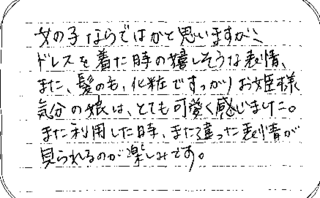 女の子ならではかと思いますが、
ドレスを着た時の嬉しそうな表情、
また、髪の毛、化粧ですっかりお姫様
気分の娘は、とても可愛く感じました。
また利用した時、また違った表情が
見られるのが楽しみです。